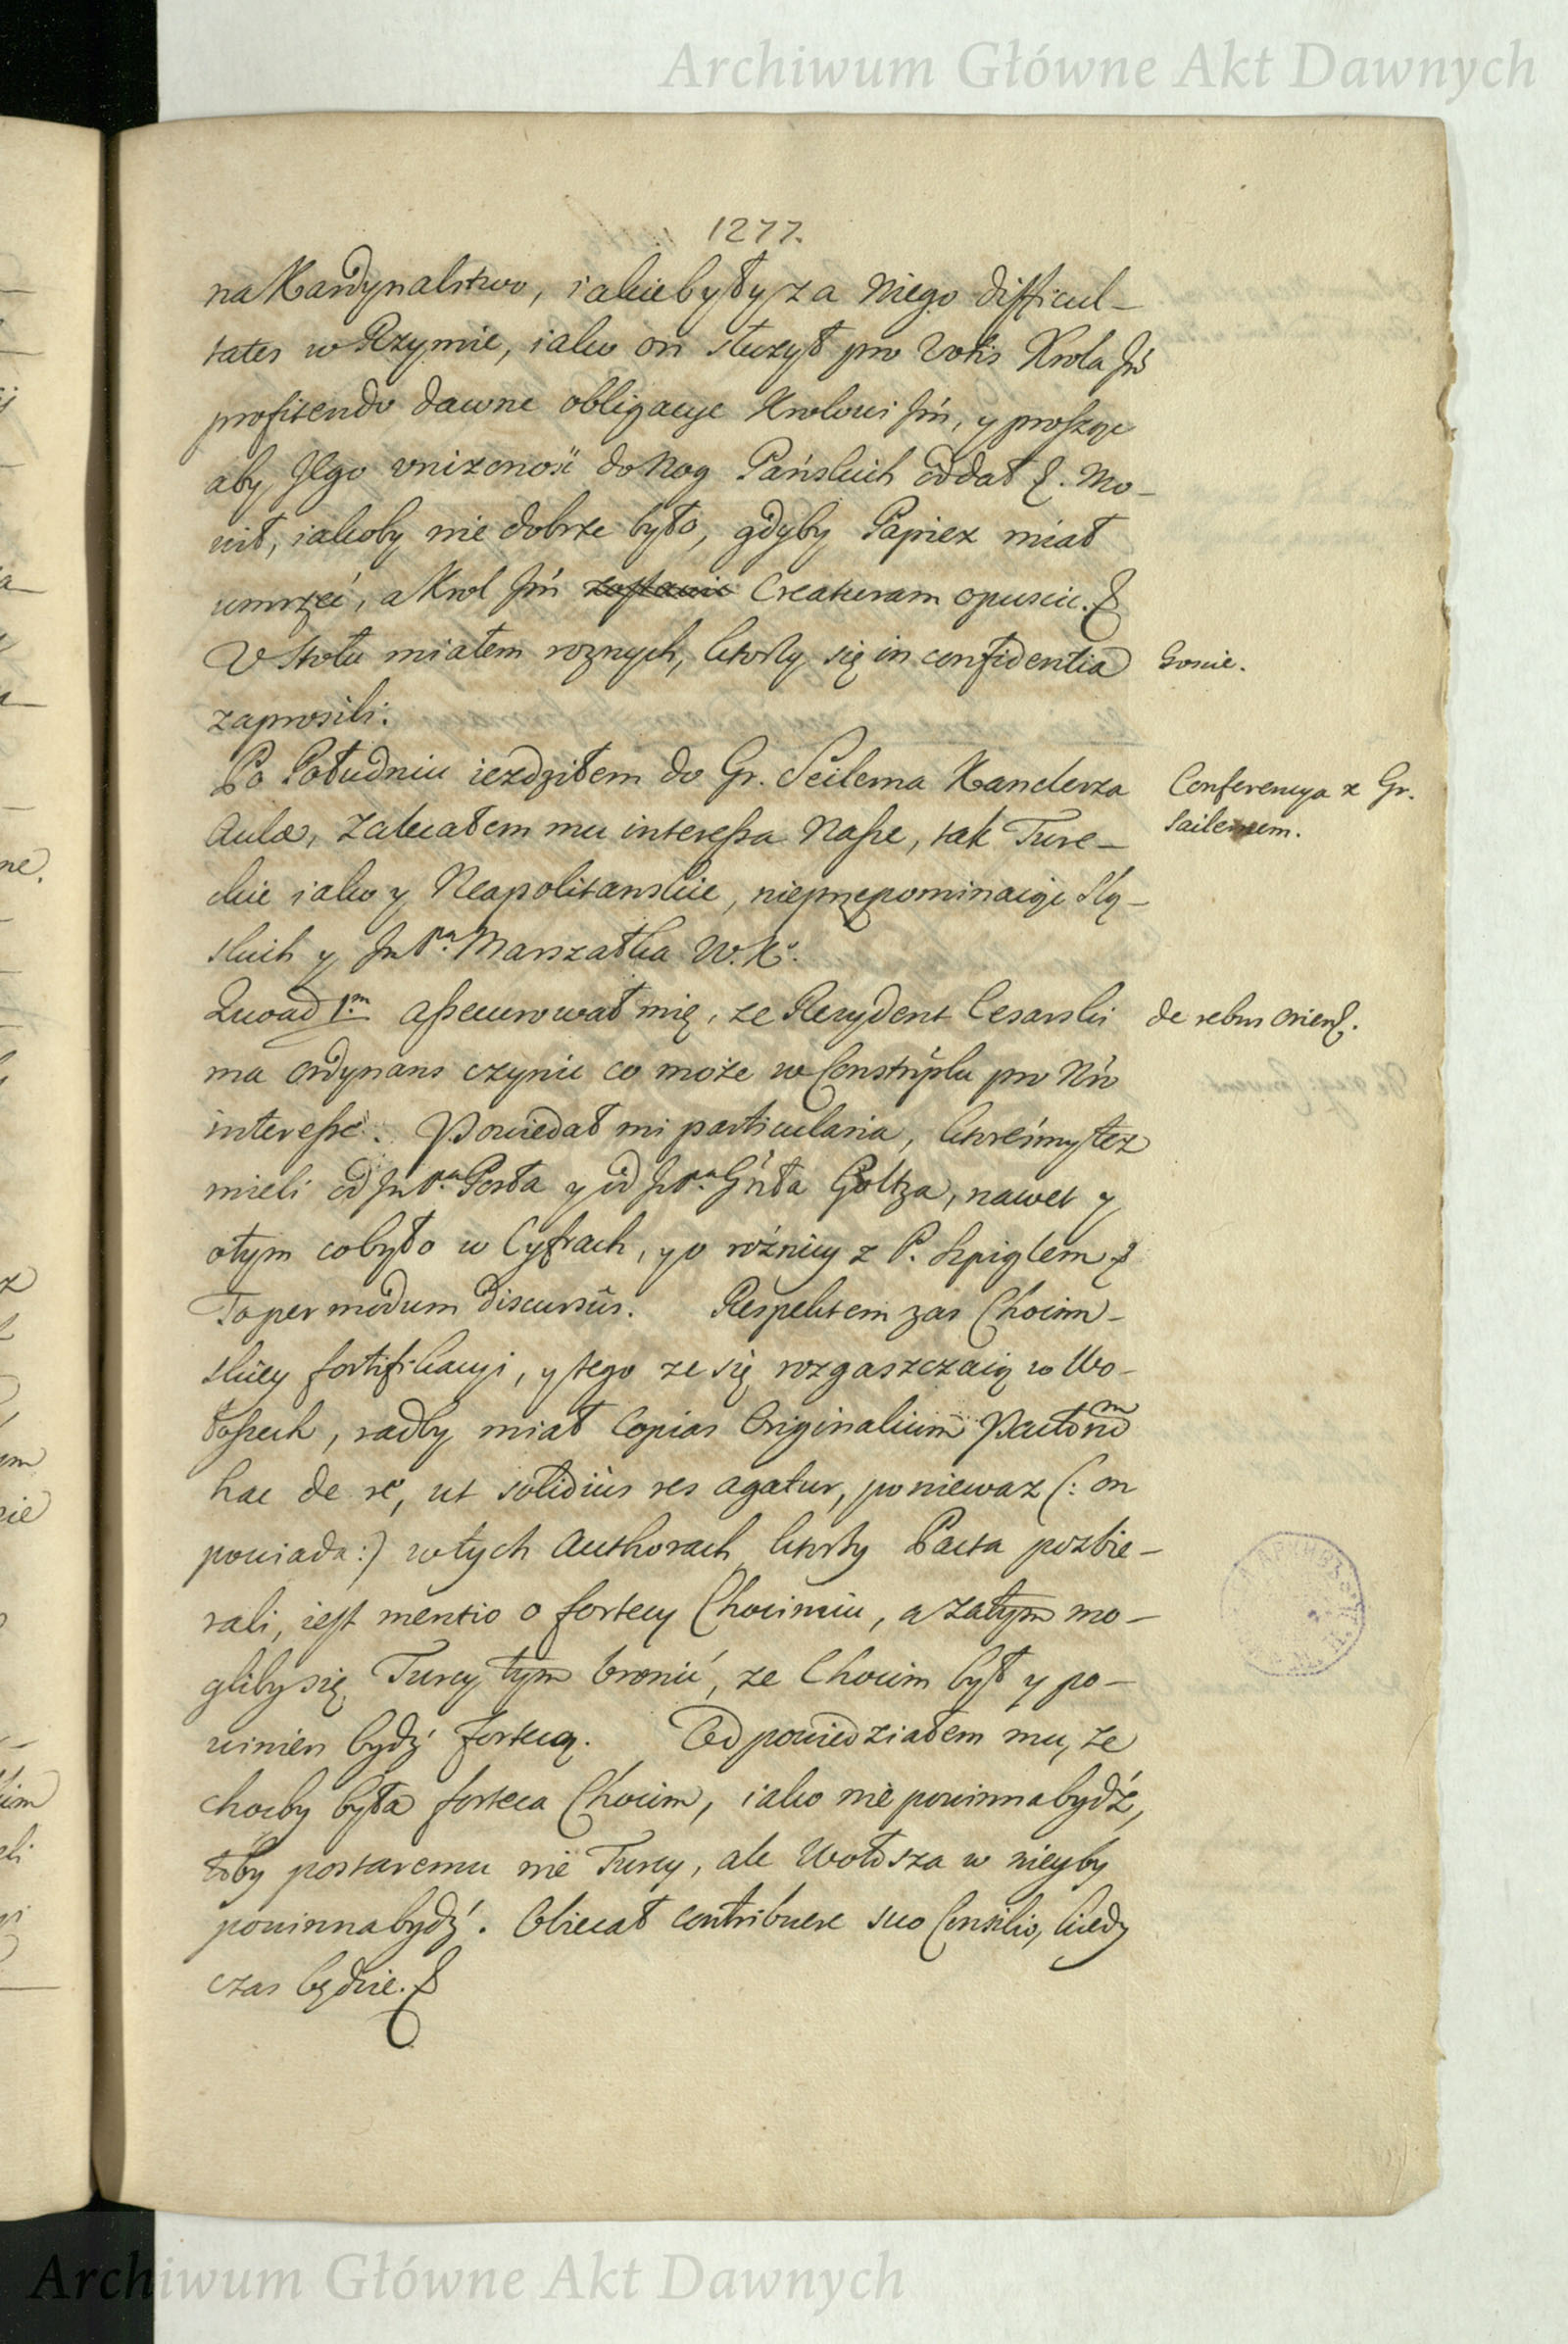 Archiwum Główne Akt Dawnych
1277.
na Kardynalstwo, iakie były za Niego difficul-
tates w Rzymie, iako on służył pro Votis Krola Jm̃
profitendo dawne obligacye Krolowi Jm̃, y proszące
aby Jego vniżoność do Nog Pańskich oddał &. Mo-
wił, iakoby nie dobrze było, gdyby Papież miał
umrzeć, a Krol Jm̃ Creaturam opuscić. &
V Stołu miałem roznych, ktorzy się in confidentia
Goscie.
zaprosili.
Po Południu iezdziłem do Gr. Seilerna Kanclerza
Conferencya z Gr.
Aulæ, zalecałem mu interessa Nasze, tak Ture-
Sailernem.
ckie iako y Neapolitanskie, nieprzepominaiąc Slą-
skich y Jm Pa. Marszałka W. K.
Quoad 1m. assecurował mię, że Rezydent Cesarski
de rebus Orient.
ma ordynans czynić co może w Constñplu pro Nr̃o
interesse. Powiedał mi particularia, ktoreśmy też
mieli od Jm Pa. Posła y od Jm Pa. Gnła Goltza, nawet y
o tym co było w Cyfrach, y o rożnicy z P. Szpiglem &
To per modum discursûs. Respektem zas Chocim-
skiey fortifikacyi, y tego ze się rozgaszczaią w Wo-
łoszech, radby miał Copias Originalium Pactorum
hac de re, ut solidiùs res agatur, poniewaz (: on
powiada :) w tych Authorach ktorzy Pacta pozbie-
rali, iest mentio o fortecy Chocimiu, a zatym mo-
gliby się Turcy tym bronić, ze Chocim był y po-
winien bydź fortecą. Odpowiedziałem mu, że
choćby była forteca Chocim, iako nie powinna bydź,
toby postaremu nie Turcy, ale Wołosza w nieyby
powinna bydź. Obiecał contribuere suo Consilio, kiedy
czas będzie. &
Archiwum Główne Akt Dawnych